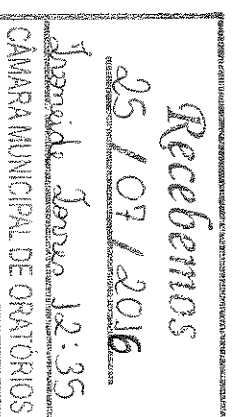 Recebemos
25 / 07 / 2016
Torres 12:35
CÂMARA MUNICIPAL DE ORATÓRIOS